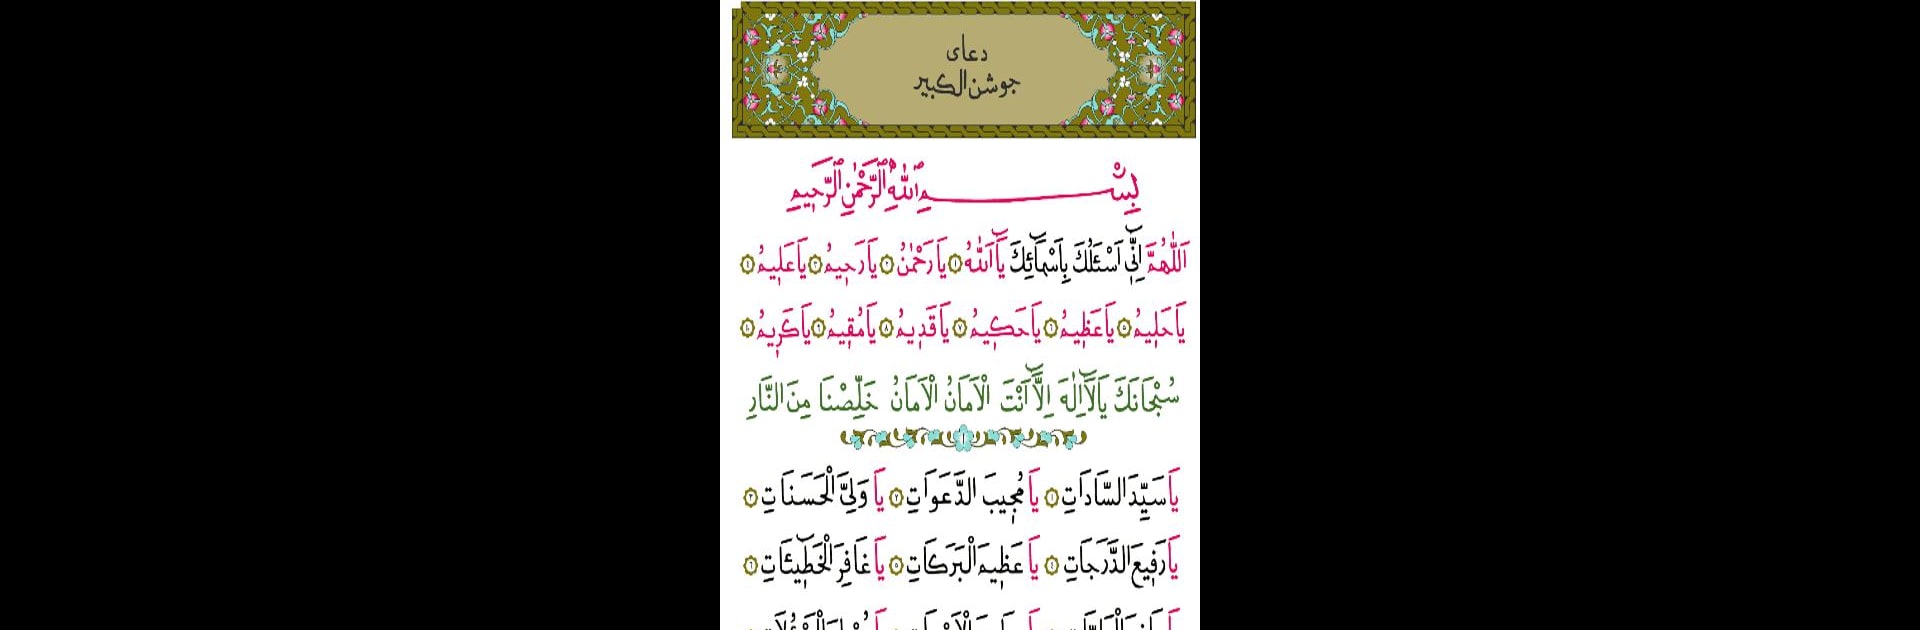 دعای
جوشن الكبير
بِسْمِ ٱللّٰهِ ٱلرَّحْمٰنِ ٱلرَّحِيمِ
اَللّٰهُمَّ اِنِّٓى اَسْئَلُكَ بِاَسْمَٓائِكَ يَٓا اَللّٰهُ ۞ يَا رَحْمٰنُ ۞ يَا رَحِيمُ ۞ يَا عَلِيمُ ۞
يَا حَلِيمُ ۞ يَا عَظِيمُ ۞ يَا حَكِيمُ ۞ يَا قَدِيمُ ۞ يَا مُقِيمُ ۞ يَا كَرِيمُ ۞
سُبْحَانَكَ يَا لَٓا اِلٰهَ اِلَّٓا اَنْتَ الْاَمَانُ الْاَمَانُ خَلِّصْنَا مِنَ النَّارِ
يَا سَيِّدَ السَّادَاتِ ۞ يَا مُجِيبَ الدَّعَوَاتِ ۞ يَا وَلِىَّ الْحَسَنَاتِ ۞
يَا رَفِيعَ الدَّرَجَاتِ ۞ يَا عَظِيمَ الْبَرَكَاتِ ۞ يَا غَافِرَ الْخَطِٓيئَاتِ ۞